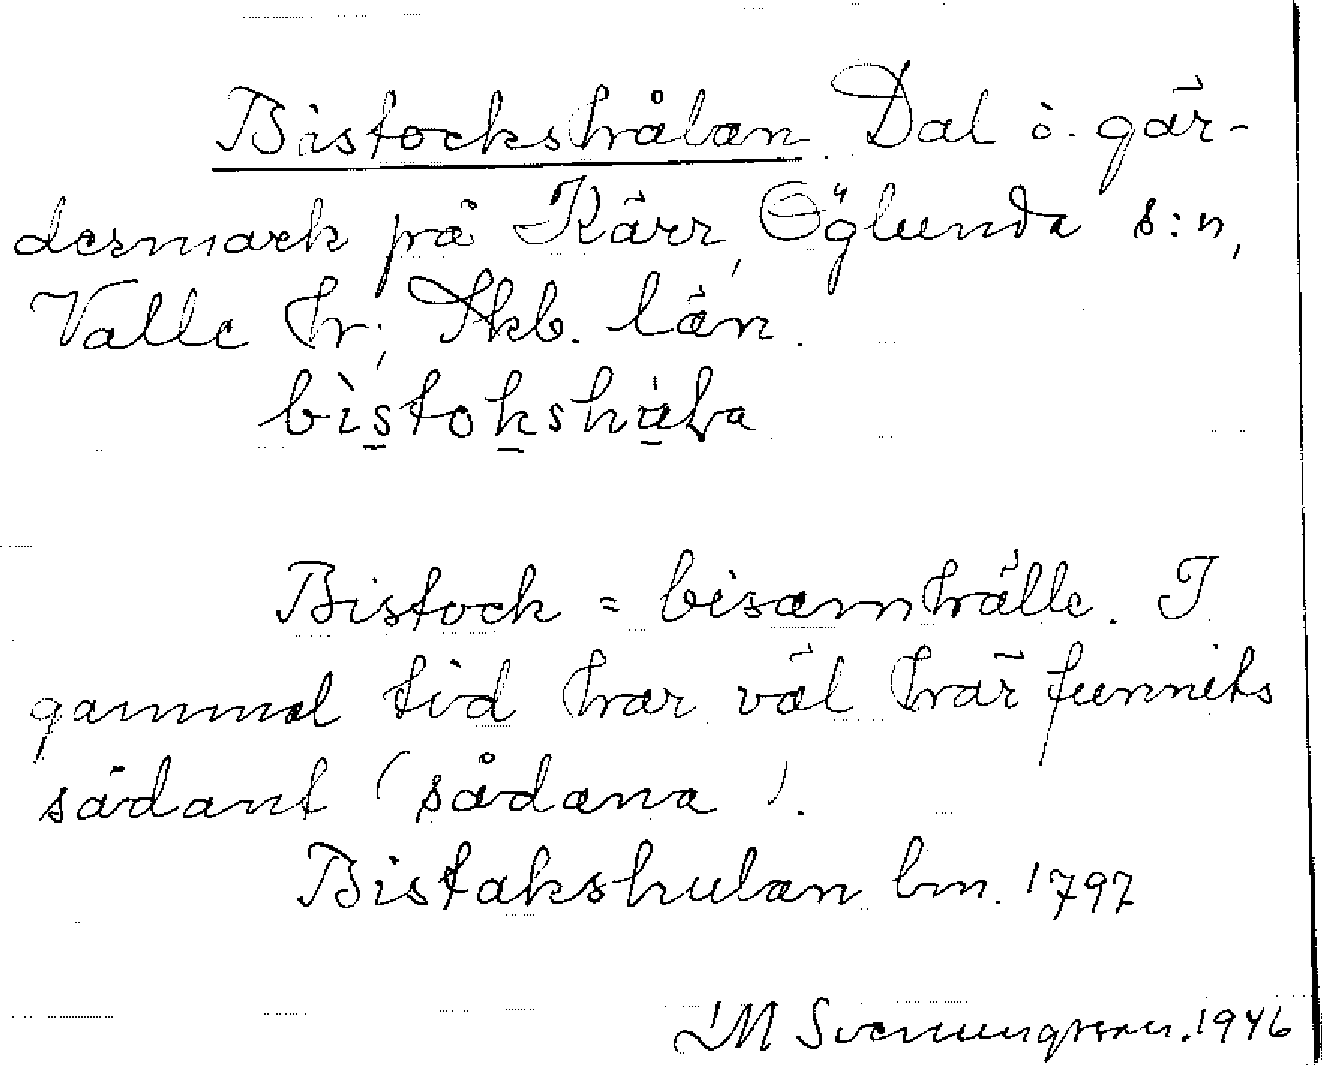 Bistockshålan Dal i gär-
desmark på Kärr, Öglunda s:n,
Valle hr; Skb. län.
bìstokshåla
Bistock = bisamhälle. I
gammal tid har väl här funnits
sådant (sådana).
Bistakshulan lm. 1797
LM Svenungsson. 1946